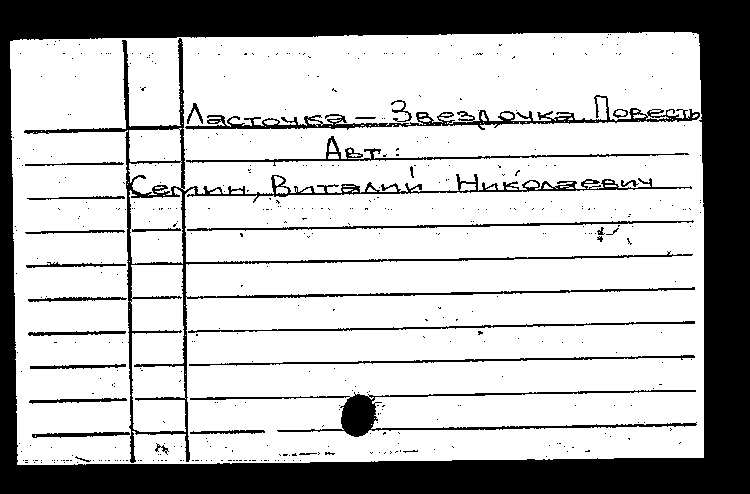 Ласточка – Звездочка. Повесть
Авт.:
Семин, Виталий Николаевич